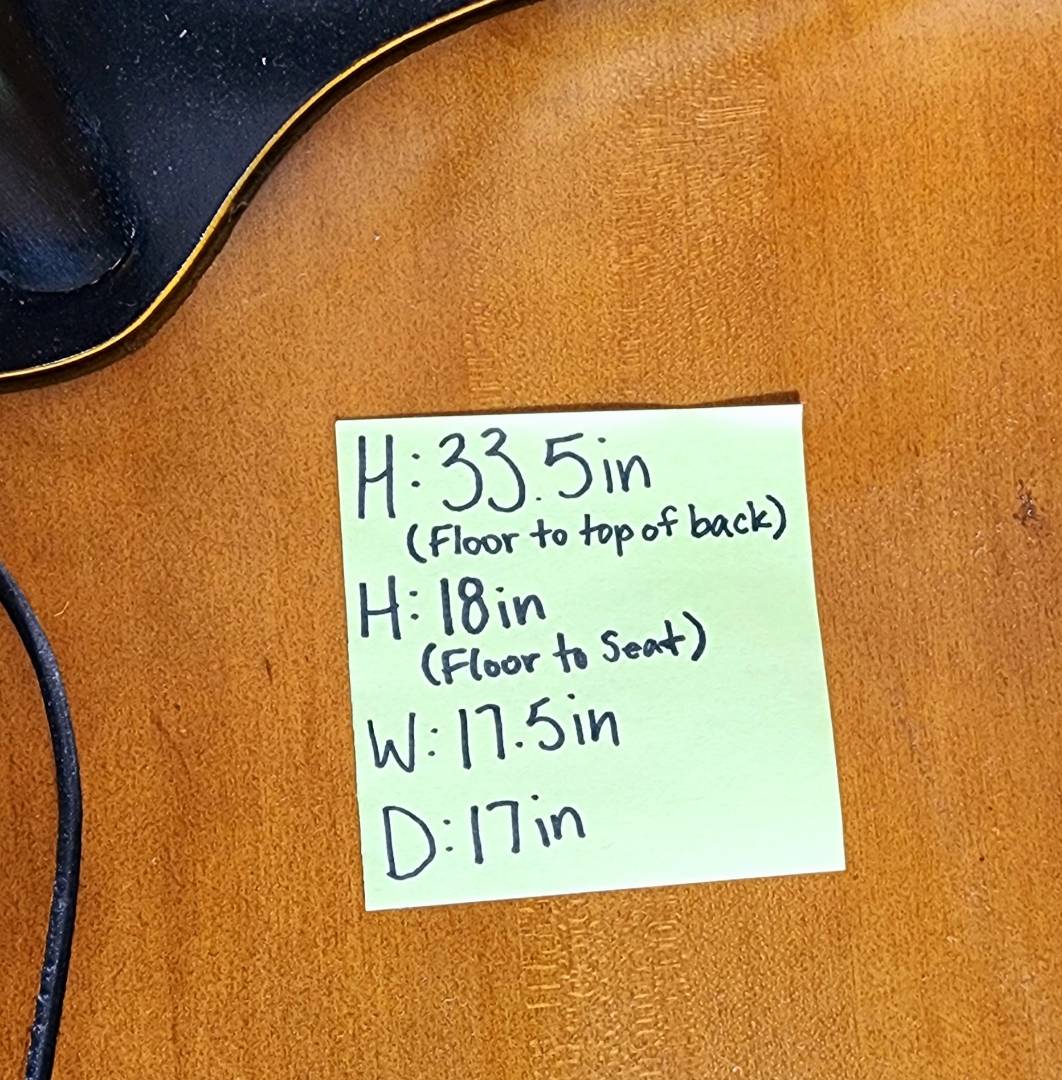 H: 33.5in
(Floor to top of back)
H: 18in
(Floor to Seat)
W: 17.5in
D: 17in